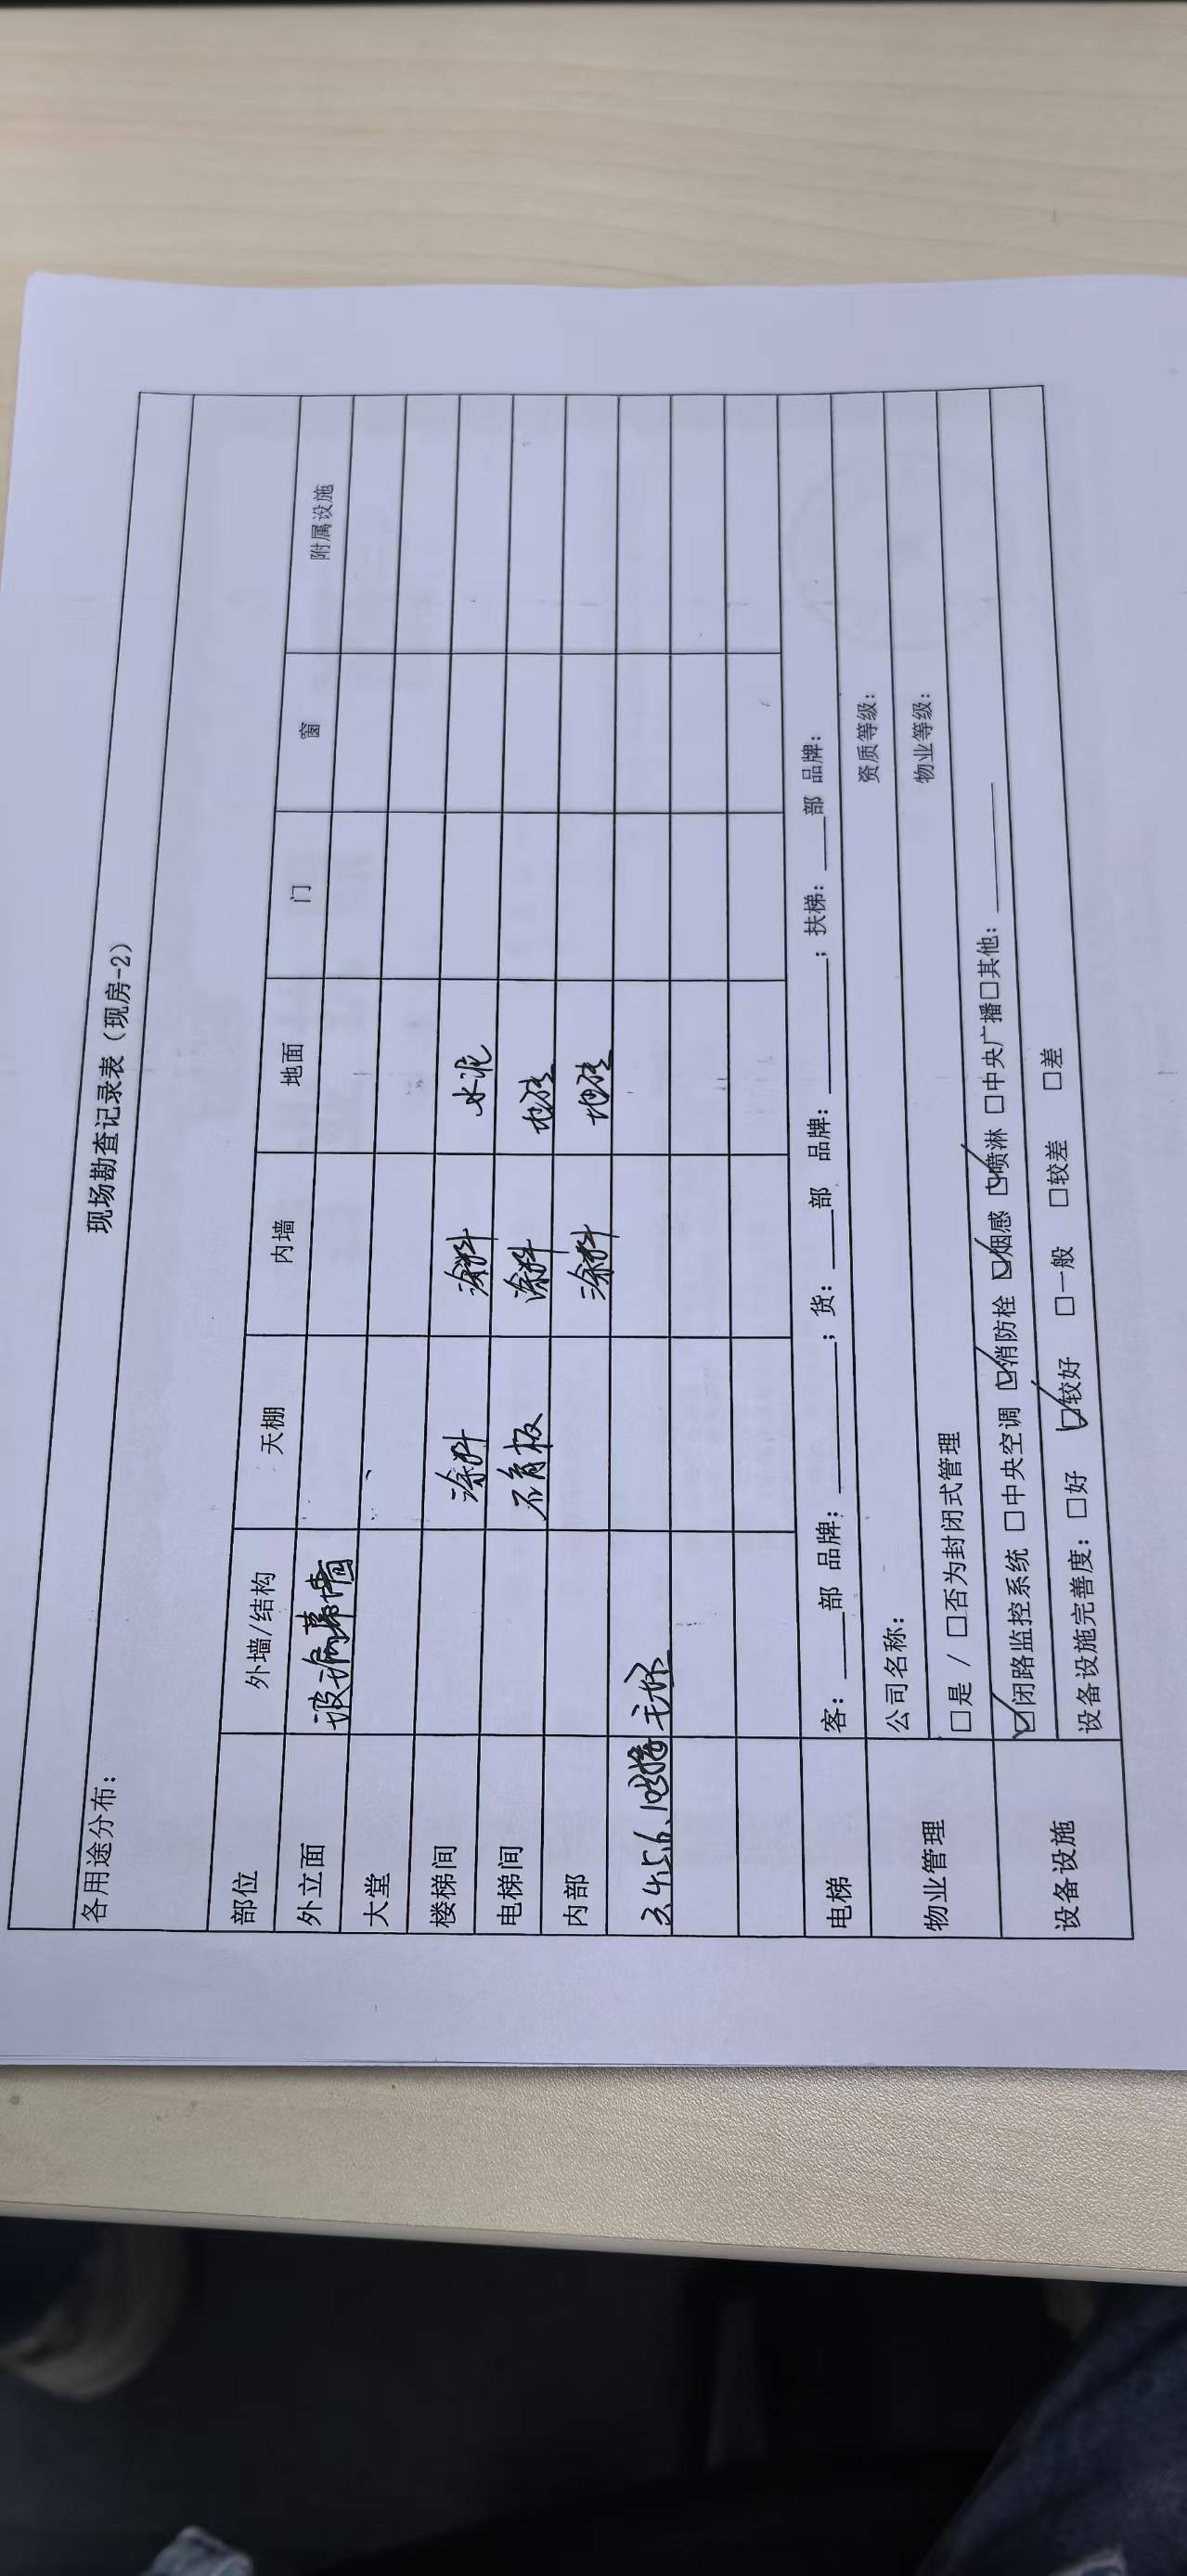 现场勘查记录表（现房-2）
各用途分布：
部位 外墙/结构 天棚 内墙 地面 门 窗 附属设施
外立面 玻璃幕墙
大堂
楼梯间 涂料 涂料 水泥
电梯间 石膏板 涂料 地砖
内部 涂料 地砖
3.4.5.6、10 毛坯
电梯 客：____部 品牌：________；货：____部 品牌：________；扶梯：____部 品牌：
物业管理 公司名称： 资质等级：
□是 / □否为封闭式管理 物业等级：
设备设施 ☑闭路监控系统 □中央空调 ☑消防栓 ☑烟感 ☑喷淋 □中央广播□其他：________
设备设施完善度：□好 ☑较好 □一般 □较差 □差